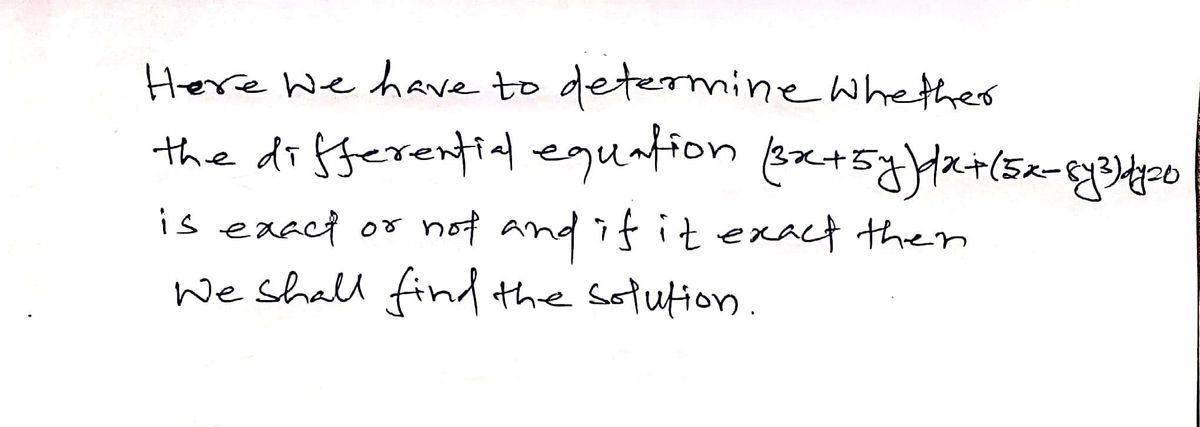 Here we have to determine whether
the differential equation (3x+5y)dx+(5x-8y3)dy=0
is exact or not and if it exact then
we shall find the solution.